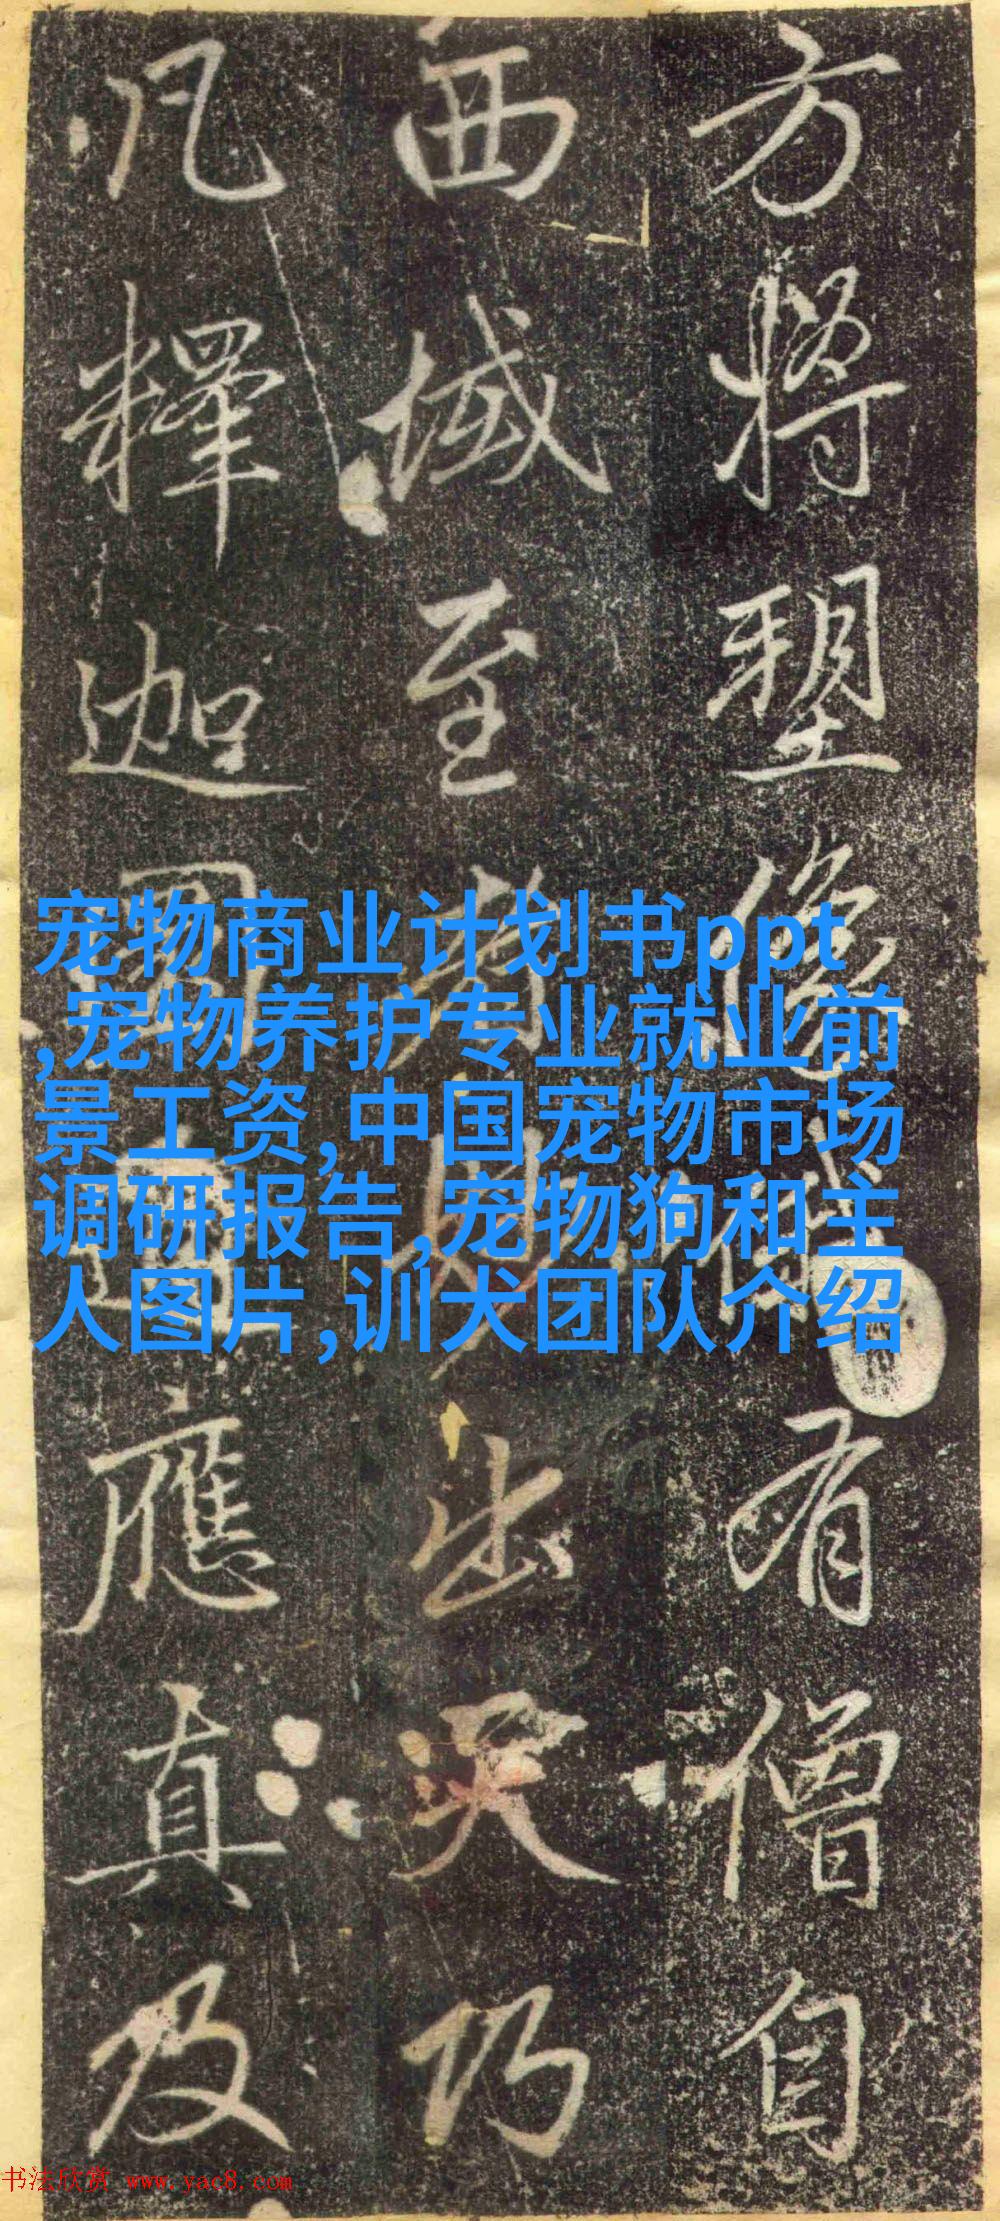 方將塑像俄有僧自
西域至者出天巧
凡釋迦應真及
宠物商业计划书ppt
,宠物养护专业就业前
景工资,中国宠物市场
调研报告,宠物狗和主
人图片,训犬团队介绍
书法欣赏 www.yac8.com